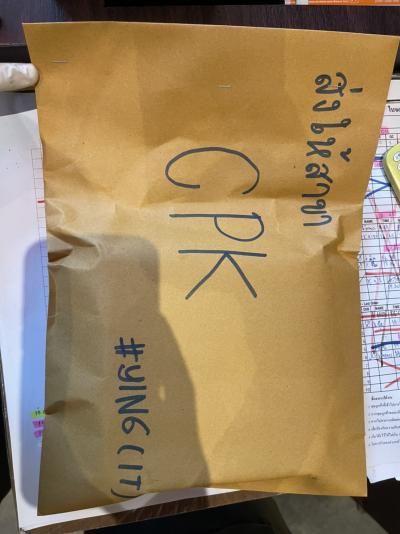 ส่งให้สาขา
CPK
#YING (IT)